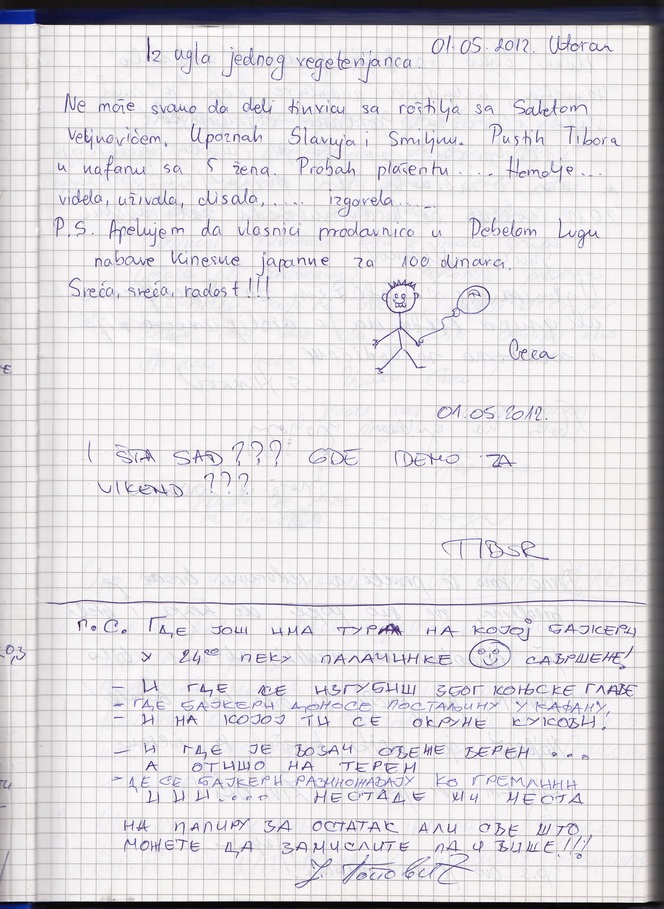 01.05.2012. Utorak
Iz ugla jednog vegeterijanca.
Ne može svako da deli tikvicu sa roštilja sa Saletom
Veljkovićem. Upoznah Slavuja i Smilju. Pustih Tibora
u kafanu sa 5 žena. Probah plašentu.... Homolje...
videla, uživala, disala,.... izgorela.....
P.S. Apelujem da vlasnici prodavnica u Debelom Lugu
nabave kineske japanke za 100 dinara.
Sreća, sreća, radost!!!
Ceca
01.05.2012.
I ŠTA SAD??? GDE IDEMO ZA
VIKEND???
TIBOR
П.С. ГДЕ ЈОШ ИМА ТУРА НА КОЈОЈ БАЈКЕРИ
У 24⁰⁰ ПЕКУ ПАЛАЧИНКЕ САВРШЕНЕ!
– И ГДЕ СЕ ИЗГУБИШ ЗБОГ КОЊСКЕ ГЛАВЕ
– ГДЕ БАЈКЕРИ ДОНОСЕ ПОСТЕЉИНУ У КАФАНУ,
– И НА КОЈОЈ ТИ СЕ ОКРУНЕ КУКОВИ.
– И ГДЕ ЈЕ ВОЗАЧ ОВЕЖЕ ВЕРЕН ...
А ОТИШО НА ТЕРЕН
– ДЕ СЕ БАЈКЕРИ РАЗМНОЖАВАЈУ КО ГРЕМЛИНИ
И И И.... НЕСТАДЕ МИ МЕСТА
НА ПАПИРУ ЗА ОСТАТАК АЛИ СВЕ ШТО
МОЖЕТЕ ДА ЗАМИСЛИТЕ ПА И ВИШЕ!!!
Ј. Поповић